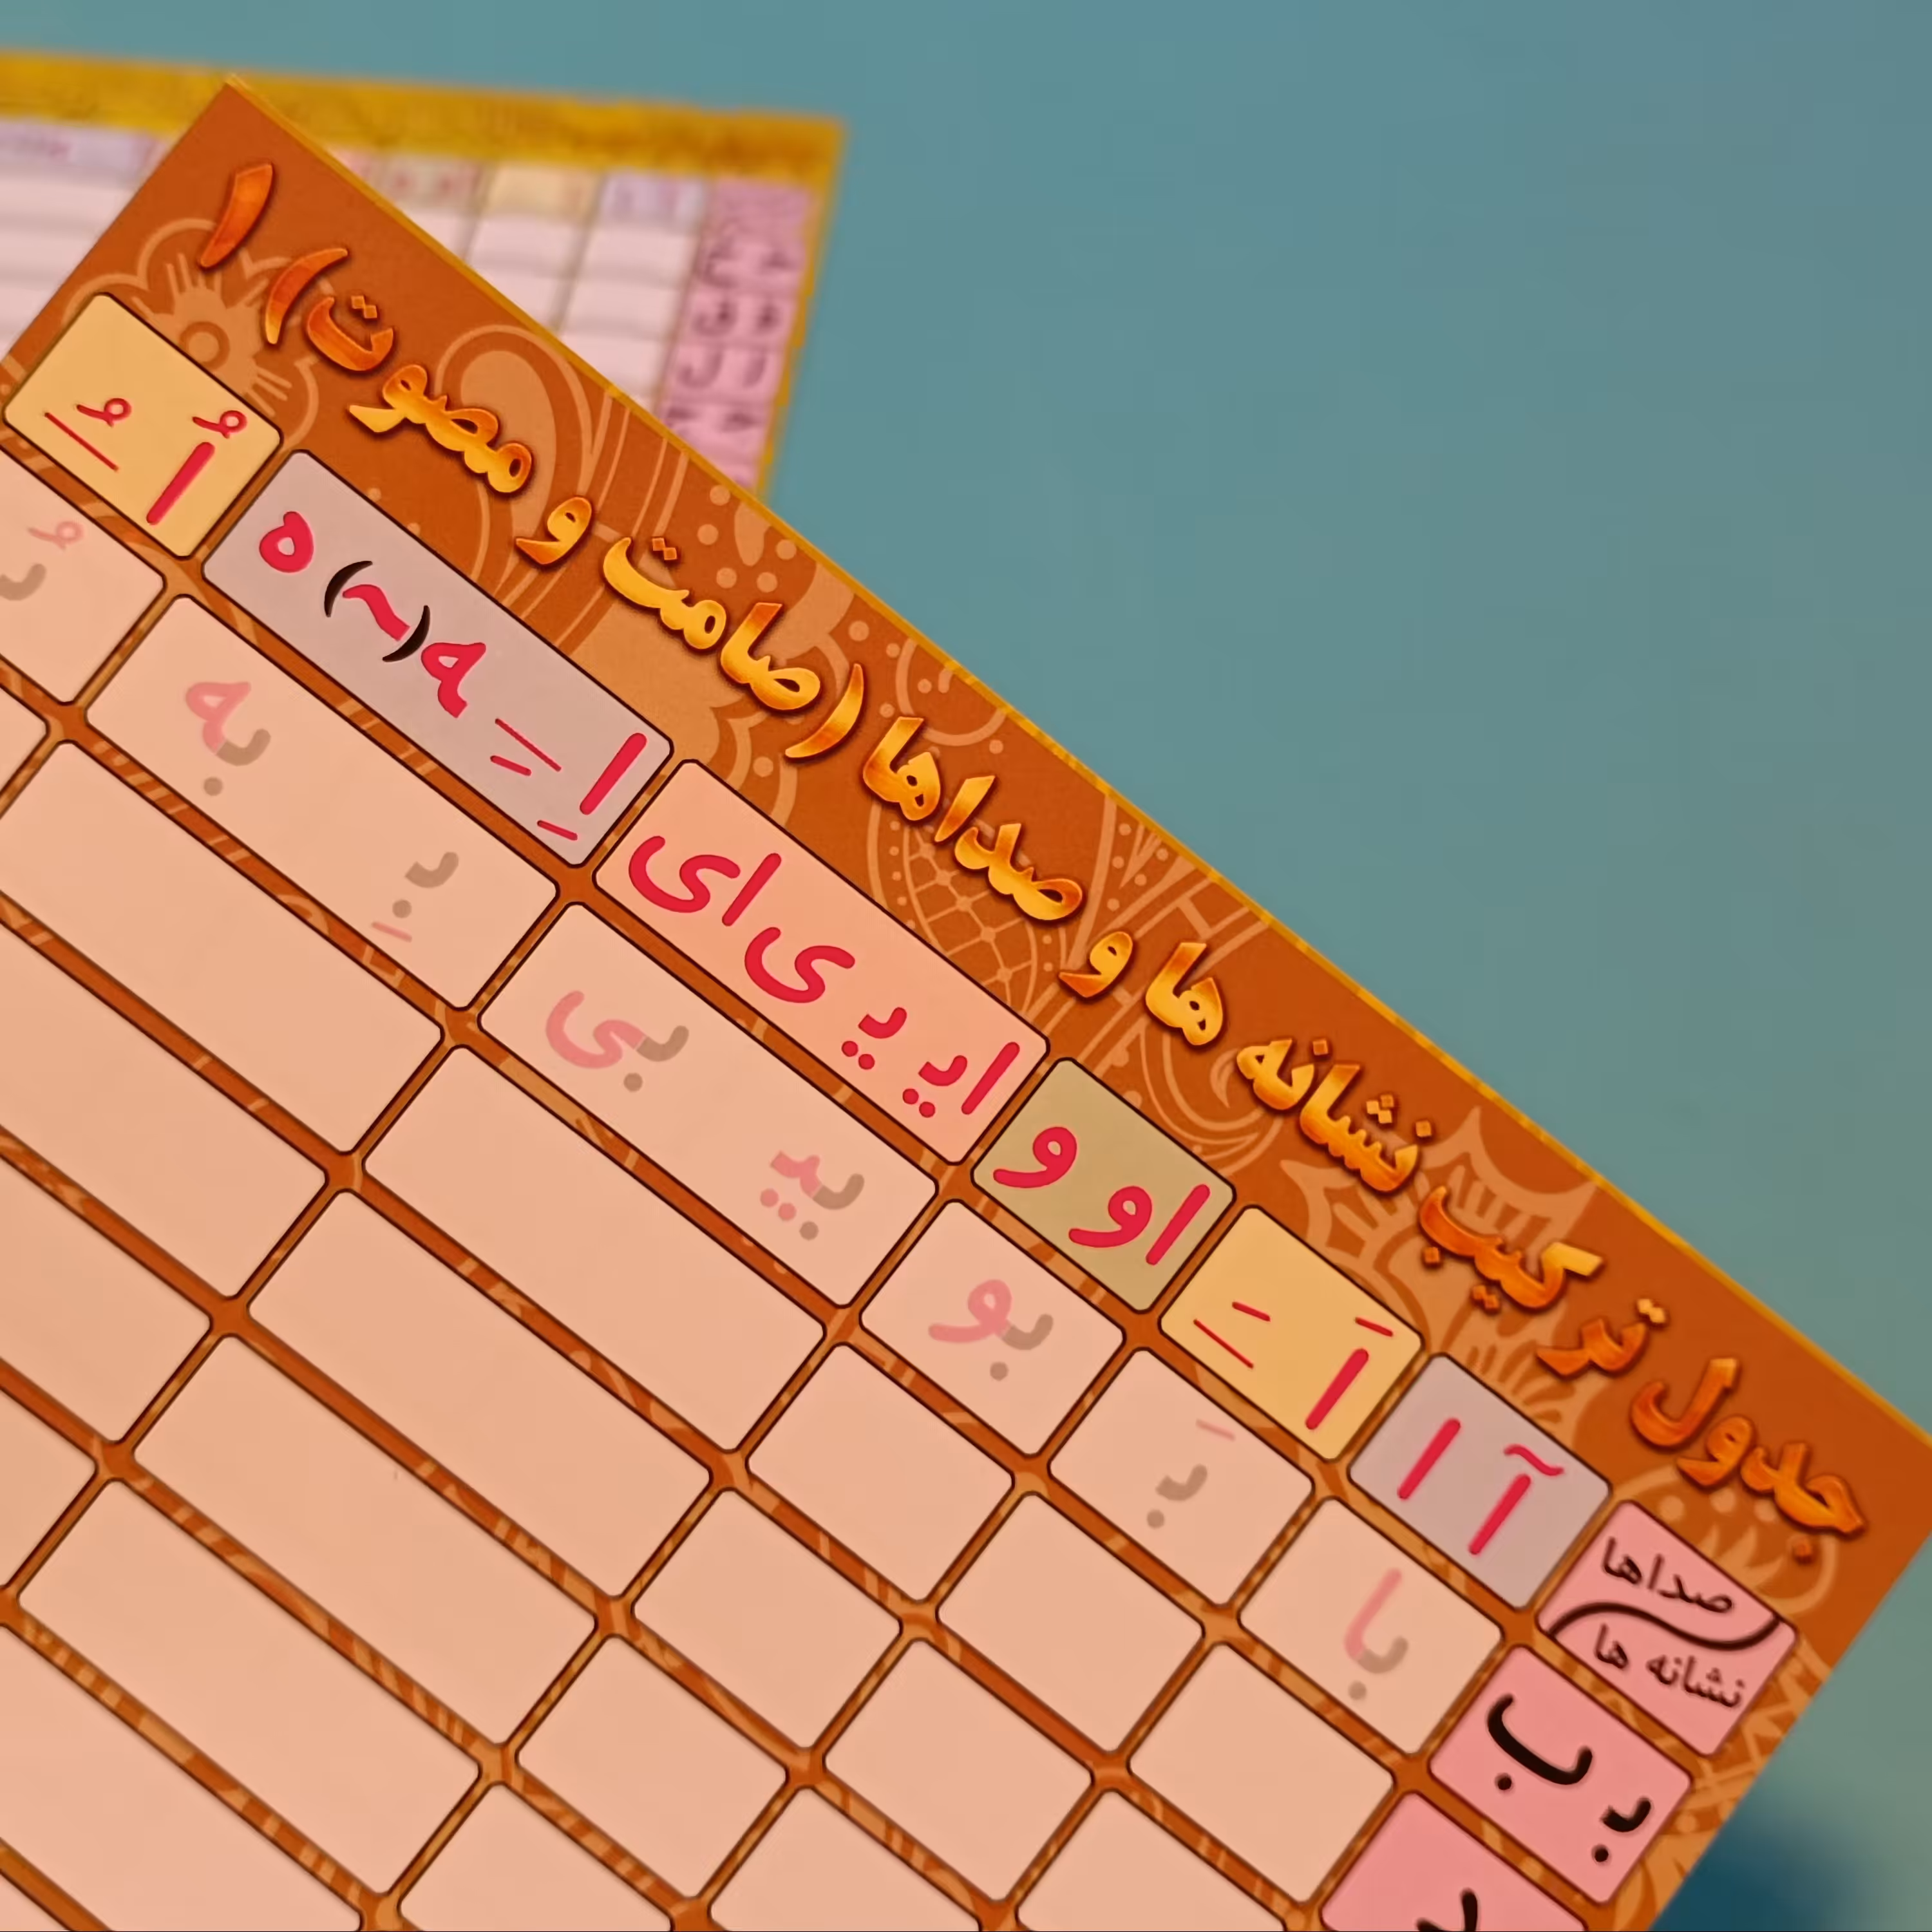 جدول ترکیب نشانه ها و صداها (صامت و مصوت) ۱
صداها
نشانه ها
آ ا
اَ ـَ
او و
ایـ یـ ی ای
اِ ـِ ـه (ـ) ه
اُ ـُ
بـ ب
با
بَـ
بو
بیـ بی
بِـ به
بُـ
د